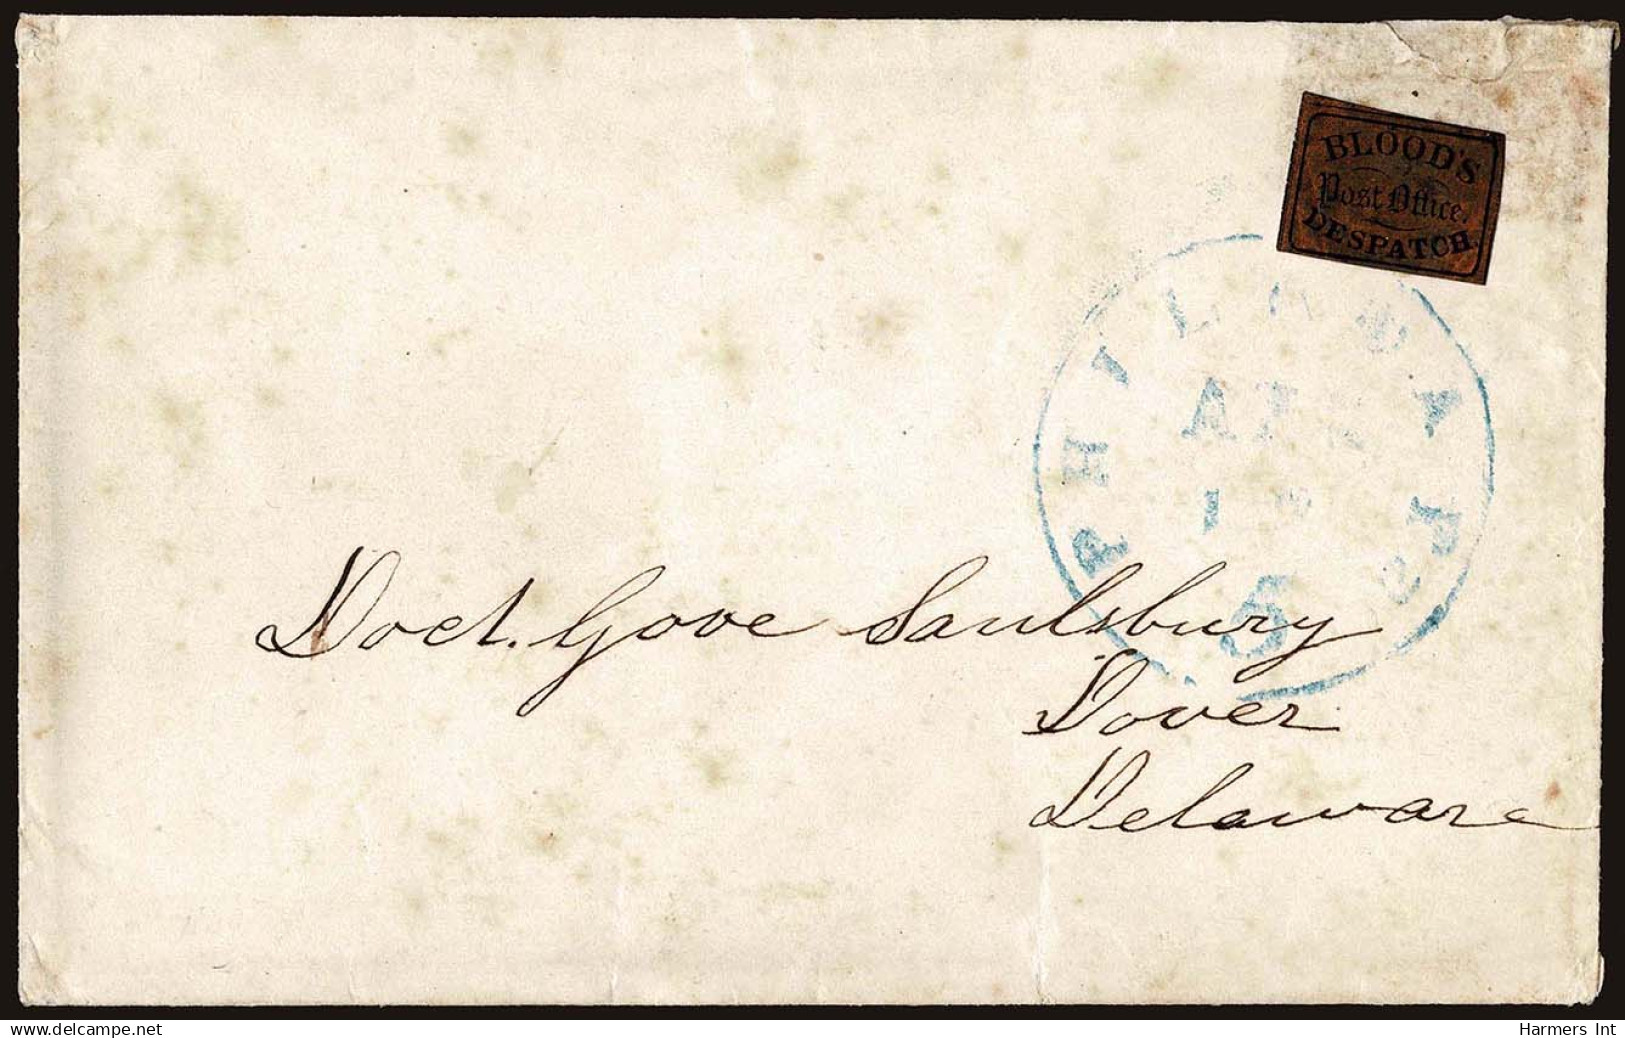 BLOOD'S
Post Office.
DESPATCH.
PHILADA PS
5
Doct. Gove Saulsbury
Dover
Delaware
www.delcampe.net
Harmers Int